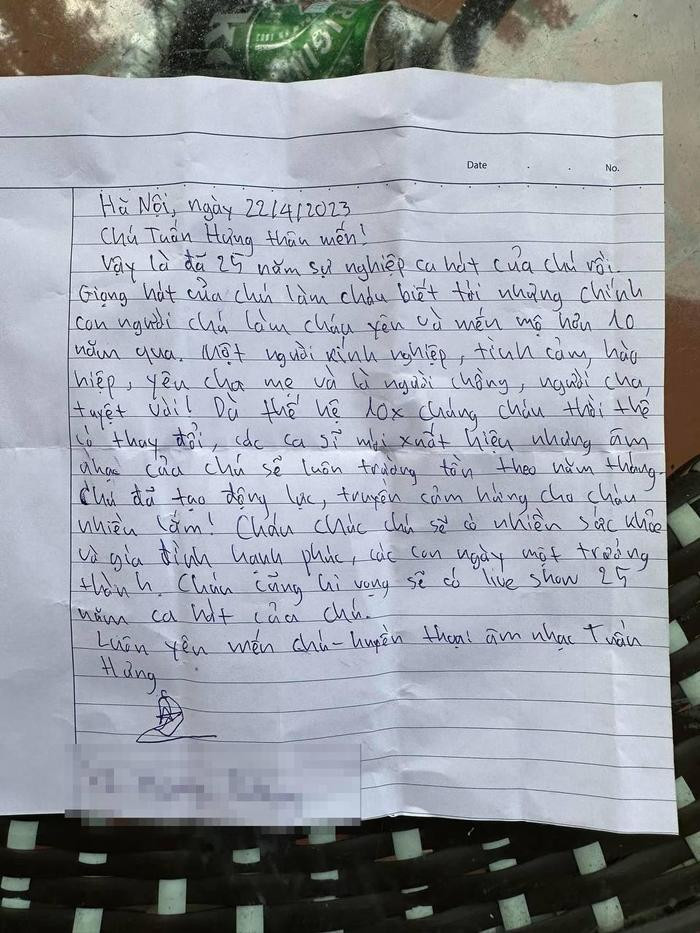 Date . . No.
Hà Nội, ngày 22/4/2023
Chú Tuấn Hưng thân mến!
Vậy là đã 25 năm sự nghiệp ca hát của chú rồi.
Giọng hát của chú làm cháu biết tới nhưng chính
con người chú làm cháu yêu và mến mộ hơn 10
năm qua. Một người kính nghiệp, tình cảm, hào
hiệp, yêu cha mẹ và là người chồng, người cha,
tuyệt vời! Dù thế hệ 10x chúng cháu thời thế
có thay đổi, các ca sĩ mới xuất hiện nhưng âm
nhạc của chú sẽ luôn trường tồn theo năm tháng.
Chú đã tạo động lực, truyền cảm hứng cho cháu
nhiều lắm! Cháu chúc chú sẽ có nhiều sức khỏe
và gia đình hạnh phúc, các con ngày một trưởng
thành. Cháu cũng hi vọng sẽ có live show 25
năm ca hát của chú.
Luôn yêu mến chú - huyền thoại âm nhạc Tuấn
Hưng